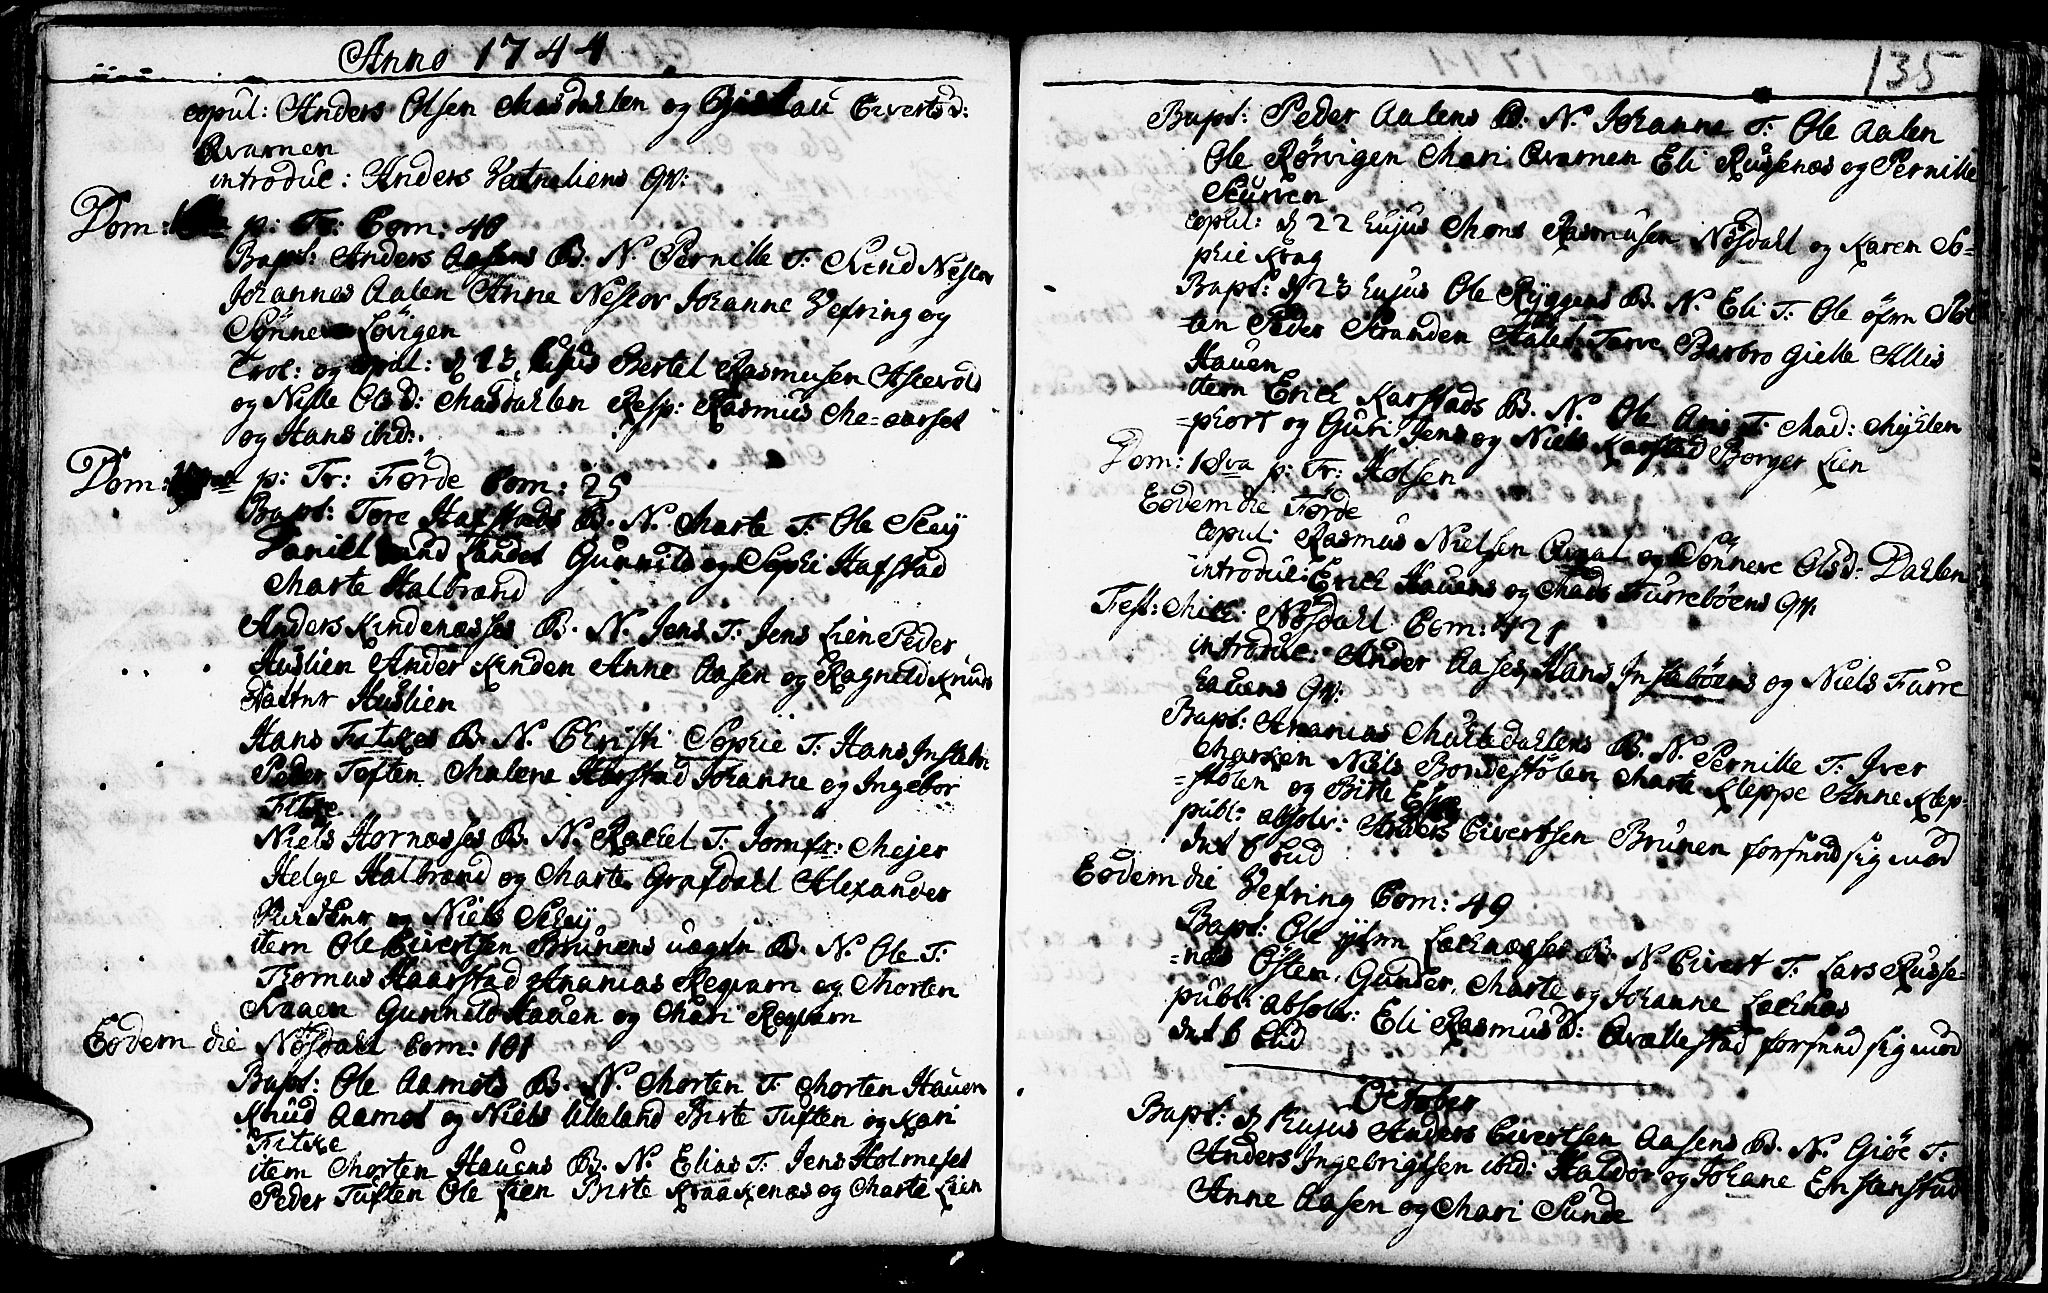 Anno 1744
copul: Anders Olsen Masdahlen og Eivertsd:
Qvamen
introduc: Anders Vatneliens qv:
Dom: p: Tr: Com: 40
Bapt: Anders Aasens B. N. Pernille T. Svend Nestor
Johannes Aalen Anne Nestor Johanne Vefring og
Sønneve Løvigen
trol: og copul: d 13 hujus Bertel Rasmusen Askevold
og Nille Olsd: Masdahlen Resp: Rasmus Me=aarset
og Hans ibid:
Dom: p: Tr: Førde Com: 25
Bapt: Tore Hafstads B. N. Marte T. Ole Sley
Daniel Sandet Gunnild og Sophi Hafstad
Marte Halbrænd
Anders Kindenæsses B. N. Jens T. Jens Lien Peder
Huslien Ander Kinden Anne Aasen og Ragnild Knuds
Datter Huslien
Hans Fitkes B. N. Christi Sophie T. Hans Instebø
Peder Toften Malene Harstad Johanne og Ingebor
Fitke
Niels Hornæsses B. N. Rachel T. Jomfr: Mejer
Helge Halbrænd og Marte Grafdahl Alexander
og Niels Sley
item Ole Eivertsen Brunens uægte B. N. Ole T.
Thomas Haarstad Ananias Reqvam og Morten
Gunnild Hauen og Mari Reqvam
Eodem die Nøsdahl Com: 101
Bapt: Ole Aamots B. N. Morten T. Morten Hauen
Knud Aamot og Niels Ulleland Birte Tuften og Kari
Fitke
item Morten Hauens B. N. Elias T. Jens Holmeset
Peder Tuften Ole Lien Birte Kraakenæs og Marte Lien
135
Bapt: Peder Aalens B. N. Johanne T. Ole Aalen
Ole Rørvigen Mari Qvamen Eli Russenæs og Pernille
Skurven
copul: d 22 hujus Mons Rasmusen Nøsdahl og Karen So=
phie Krag
Bapt: d 23 hujus Ole Ryggens B. N. Eli T. Ole öfrn
ten Peder Stranden Farve Barbro Gielle
Hauen
item Erich Karstads B. N. Ole T. Mad: Myhlen
=phort og Guri Jens og Niels Karstad Borger Lien
Dom: 18va p: Tr: Holsen
Eodem die Førde
copul: Rasmus Nielsen og Sønneve Olsd: Dahlen
introduc: Erich Hauens og Mads Furrebøens qv:
Fest: Mich: Nøsdahl Com: 121
introduc: Ander Aases, Hans Instebøens og Niels Furre
hauens qv:
Bapt: Ananias Multedahlens B. N. Pernille T. Iver
Niels Bondestølen Marte Kleppe Anne Klep=
=stølen og Birte
publ: absolv: Anders Eivertsen Brunen forsynd sig mod
det 6 bud
Eodem die Vefring Com: 49
Bapt: Ole Lachnæsses B. N. Eivert T. Lars Russe=
=næs Østen, Gunder, Marte og Johanne Lachnæs
publ: absolv: Eli Rasmusd: Qvallestad forsynd sig mod
det 6 bud
October
Bapt: d hujus Anders Eivertsen Aasens B. N. Giøe T.
Anders Ingebrigtsen ibid: Haldor og Johane Enstenstad
Anne Aasen og Mari Sunde